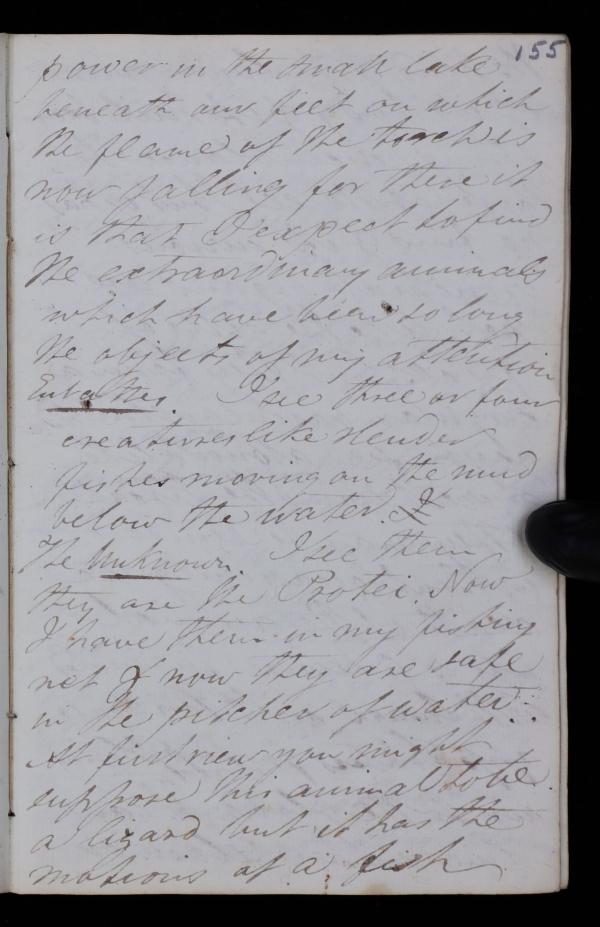 155
power in the small lake
beneath our feet on which
the flame of the torch is
now falling for there it
is that I expect to find
the extraordinary animals
which have been so long
the objects of my attention
Eubathes. I see three or four
creatures like slender
fishes moving on the mud
below the water.
The Unknown. I see them
they are the Protei. Now
I have them in my fishing
net & now they are safe
in the pitcher of water.
At first view you might
suppose this animal to be
a lizard but it has the
motions of a fish